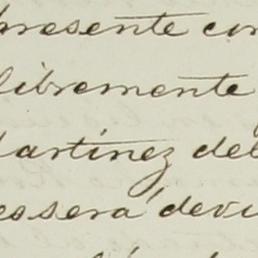 presente con
libremente
Martinez del
será devu